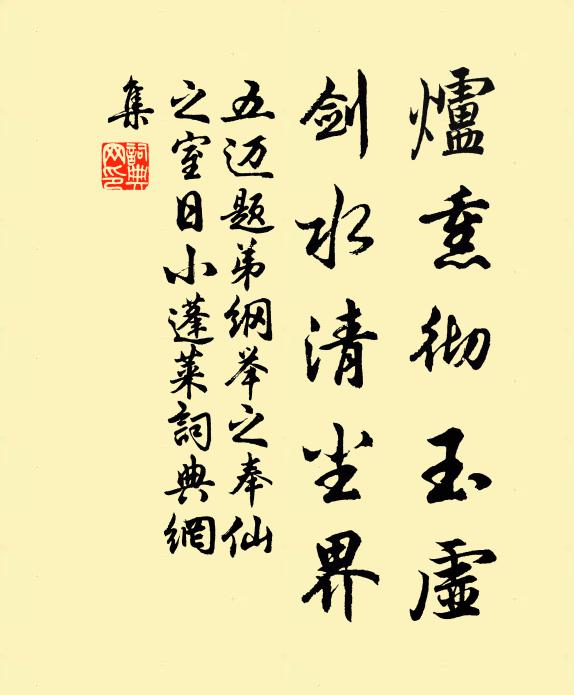 爐熏彻玉虛
剑水清尘界
五迈题弟纲举之奉仙
之室日小蓬莱詞典網
集
詞典網印